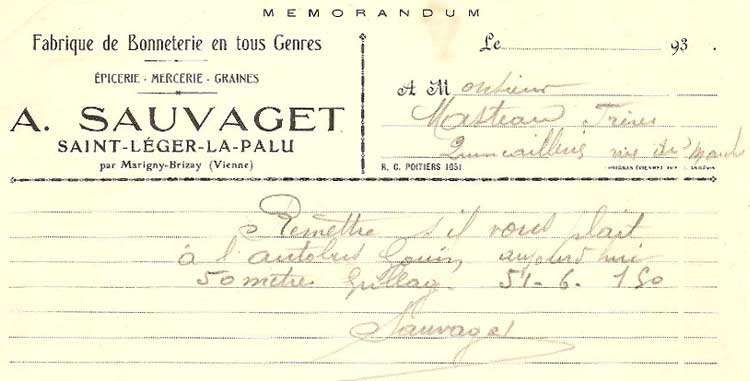 MEMORANDUM
Fabrique de Bonneterie en tous Genres
ÉPICERIE - MERCERIE - GRAINES
A. SAUVAGET
SAINT-LÉGER-LA-PALU
par Marigny-Brizay (Vienne)
Le 93
A Monsieur
Masteau Frères
Quincaillerie rue du Marché
R. C. POITIERS 1051
Remettre s'il vous plait
à l'autobus Gouin aujourd'hui
50 metre Grillage 51-6. 150
Sauvaget